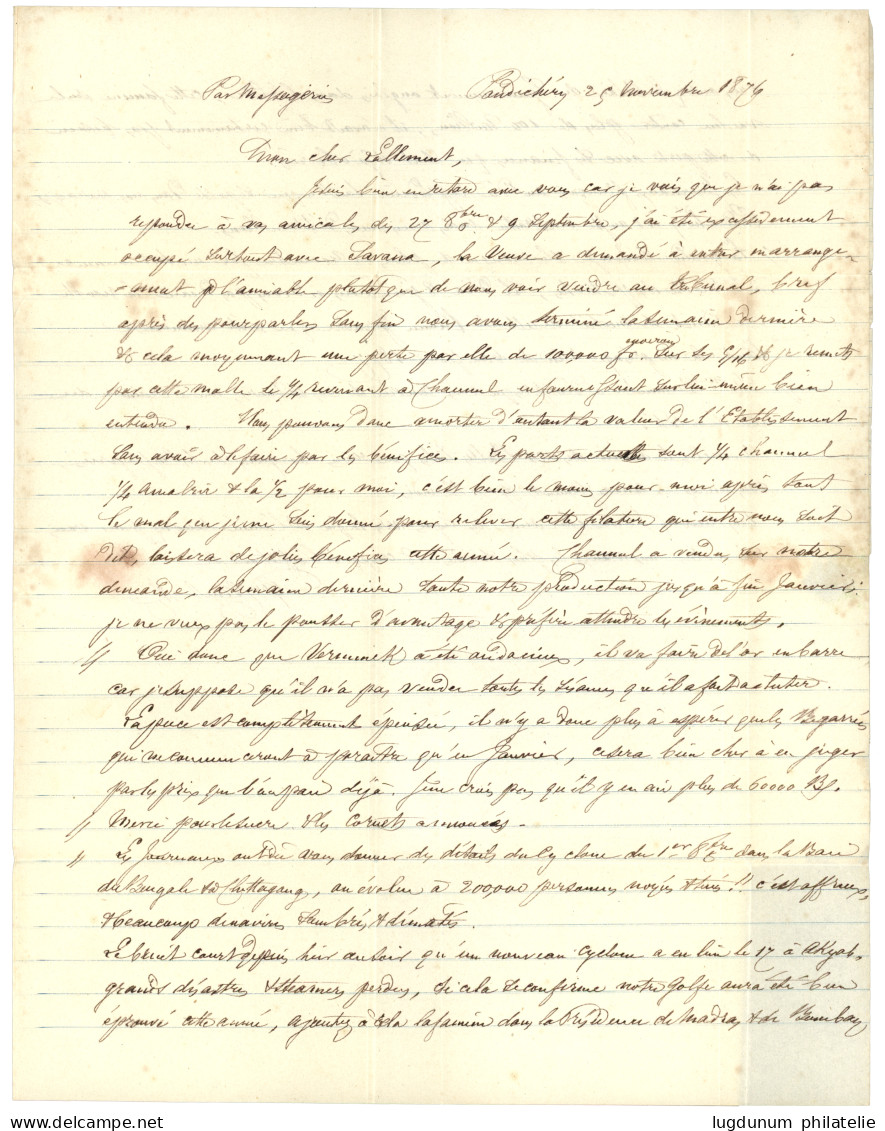 Par Messageries Pondichéry 25 Novembre 1876
Mon cher Lallement,
Je suis bien en retard avec vous car je vois que je n'ai pas
repondu à vos amicales des 27 8bre & 9 Septembre, j'ai été excessivement
occupé surtout avec Savana, la Veuve a demandé à entrer en arrange-
-ment à l'amiable plutôt que de nous voir vendre au tribunal, bref
après des pourparlers sans fin nous avons terminé la semaine dernière
& cela moyennant une perte par elle de 100,000 fs environ sur ses 5/16 & je remets
par cette malle le 1/4 revenant à Chaumel en fournissant sur lui-même bien
entendu. Nous pouvons donc amortir d'autant la valeur de l'Etablissement
sans avoir à le faire par les bénéfices. Les parts actuelles sont 1/4 Chaumel
1/4 Amalric & la 1/2 pour moi, c'est bien le moins pour moi après tout
le mal que je me suis donné pour relever cette filature qui entre nous soit
dit, laissera de jolis bénéfices cette année. Chaumel a vendu, sur notre
demande, la semaine dernière toute notre production jusqu'à fin Janvier;
je ne veux pas le pousser d'avantage & préfère attendre les évènements.
// Oui donc que Verminck a été audacieux, il va faire de l'or en barre
car je suppose qu'il n'a pas vendu toutes les Sésames qu'il a fait acheter.
La place est complètement épuisée, il n'y a donc plus à espérer que les Bigarrés
qui ne commenceront à paraître qu'en Janvier, ce sera bien cher à en juger
par les prix que l'on paie déjà. Je ne crois pas qu'il y en ait plus de 60000 Bs.
// Merci pour le sucre & les cornets annoncés.
// Les Journaux ont dû vous donner des détails du Cyclone du 1er 8bre dans la Baie
du Bengale & à Chittagong, on évalue à 200,000 personnes noyées & tués!! c'est affreux,
& beaucoup de navires sombrés & démâtés.
Le bruit court depuis hier au soir qu'un nouveau cyclone a eu lieu le 17 à Akyab-
grands désastres & steamers perdus, si cela se confirme notre Golfe aura été bien
éprouvé cette année, ajoutez à cela la famine dans la Présidence de Madras & de Bombay
lugdunum philatelie